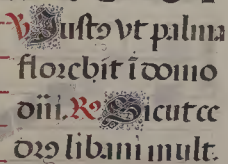 V Justꝰ vt palma
florebit ī domo
dñi. R Sicut ce
drꝰ libani mult.